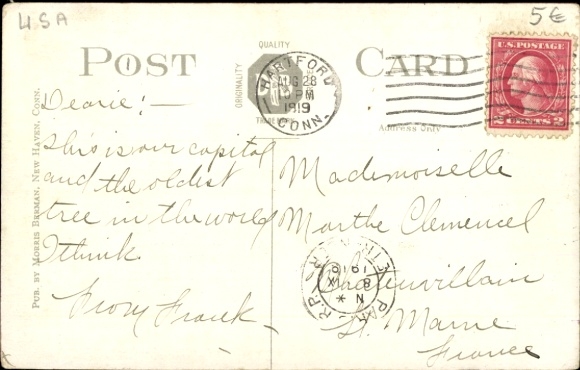 USA
5€
POST CARD
QUALITY
ORIGINALITY
HARTFORD
AUG 28
PM
1919
CONN.
U.S. POSTAGE
2 CENTS 2
Address Only
PUB. BY MORRIS BERMAN, NEW HAVEN, CONN.
Dearie: —
This is our capital
and the oldest
tree in the world
I think
From Frank —
Mademoiselle
Marthe Clemencel
Chateauvillain
Ht. Marne
France